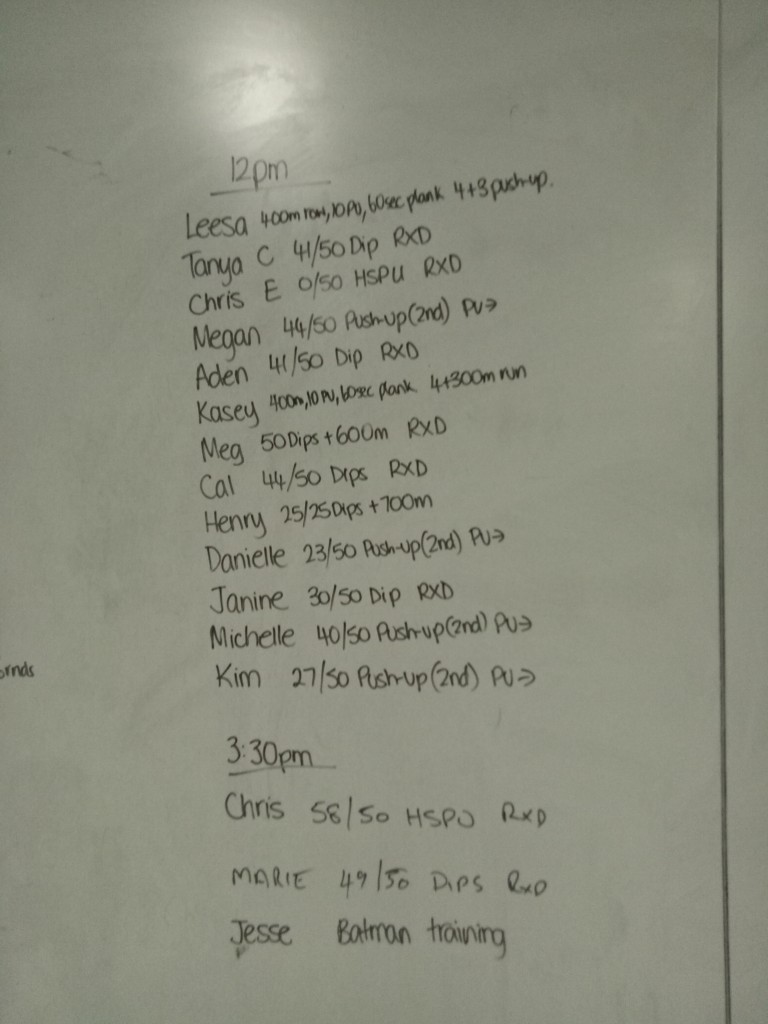 12pm
Leesa 400m row, 10PU, 60sec plank 4+3 push-up.
Tanya C 41/50 Dip RXD
Chris E 0/50 HSPU RXD
Megan 44/50 Push-up (2nd) PU→
Aden 41/50 Dip RXD
Kasey 400m, 10PU, 60sec plank 4+300m run
Meg 50 Dips + 600m RXD
Cal 44/50 Dips RXD
Henry 25/25 Dips + 700m
Danielle 23/50 Push-up (2nd) PU→
Janine 30/50 Dip RXD
Michelle 40/50 Push-up (2nd) PU→
Kim 27/50 Push-up (2nd) PU→
3:30pm
Chris 58/50 HSPU RXD
MARIE 49/50 DIPS RXD
Jesse Batman training